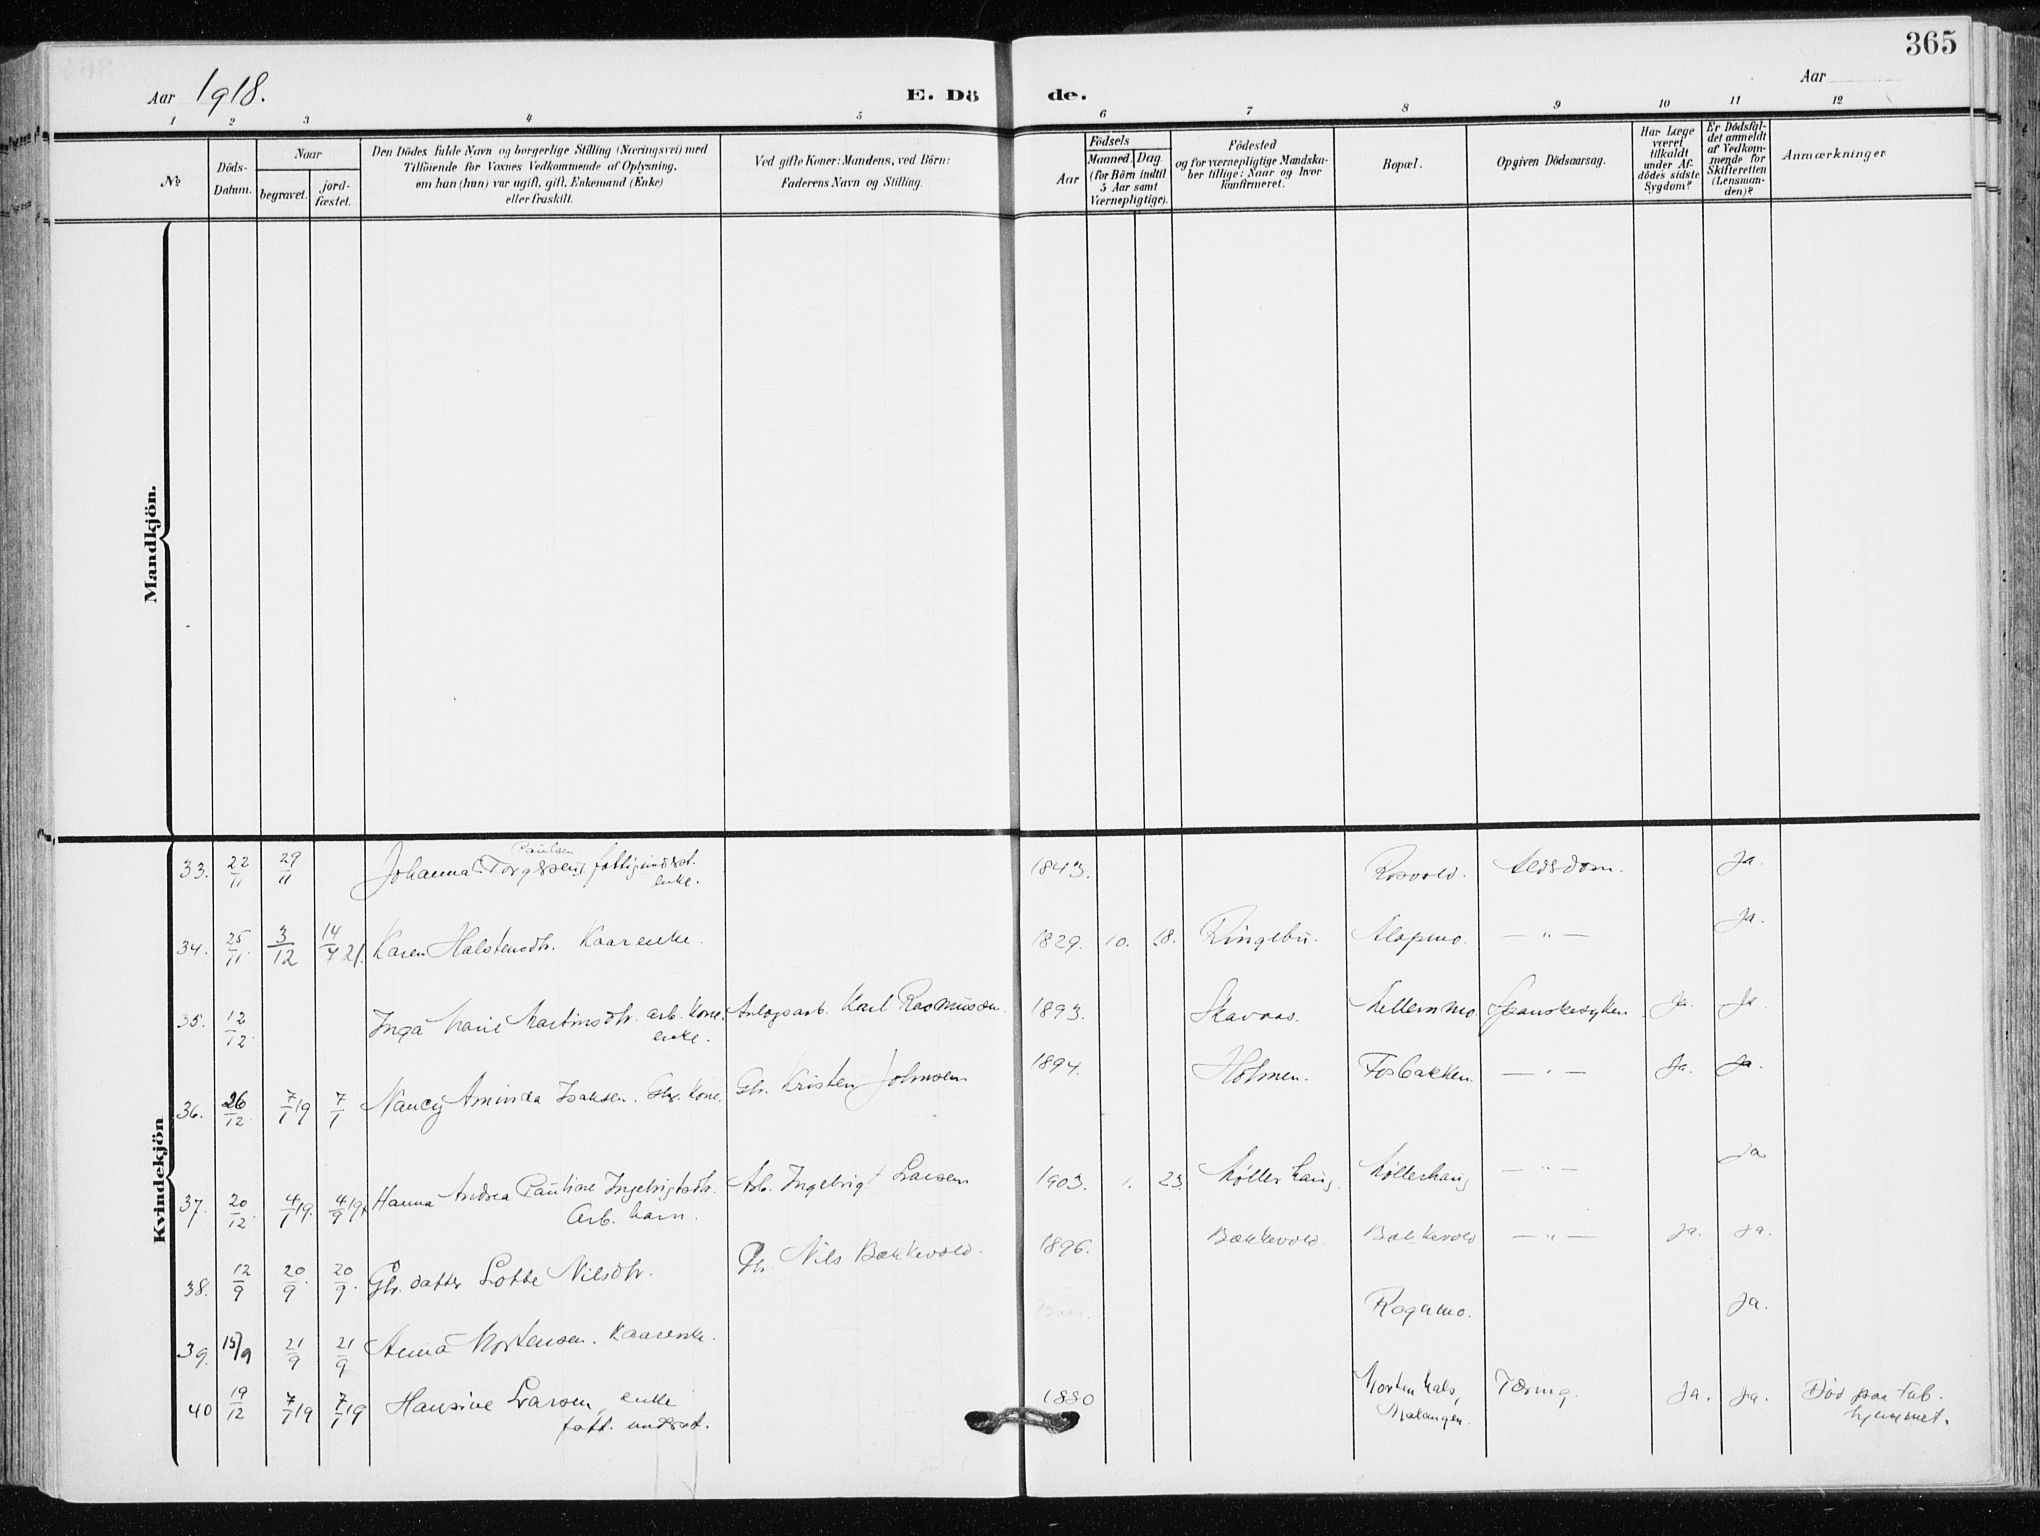 365
Aar 1918.
E. Dö de.
Aar
1 2 3 4 5 6 7 8 9 10 11 12
№
Döds-
Datum.
Naar
begravet.
jord-
fæstet.
Den Dödes fulde Navn og borgerlige Stilling (Næringsvei) med
Tilföiende for Voxnes Vedkommende af Oplysning,
om han (hun) var ugift, gift, Enkemand (Enke)
eller fraskilt.
Ved gifte Koner: Mandens, ved Börn:
Faderens Navn og Stilling.
Födsels
Aar
Maaned. Dag
(for Börn indtil
5 Aar samt
Værnepligtige).
Födested
og for værnepligtige Mandska-
ber tillige: Naar og hvor
konfirmeret.
Bopæl.
Opgiven Dödsaarsag.
Har Læge
været
tilkaldt
under Af-
dödes sidste
Sygdom?
Er Dödsfal-
det anmeldt
af Vedkom-
mende for
Skifteretten
(Lensman-
den)?
Anmærkninger
Mandkjön.
Kvindekjön
33. 22/11 29/11 Johanna Torgersen fattigunderst. 1843. Rosvold. Aldsdom. Ja.
Paulsen
enke.
34. 25/11 3/12 14/7 21. Karen Halstensdtr. Kaarenke. 1829. 10. 18. Ringebu. Alapmo. — " — Ja.
35. 12/12. Inga Marie Martinsdtr. arb. kone. Anlegsarb. Karl Rasmussen. 1893. Skavaas. Mellemmo. Spanskesyken. Ja. Ja.
enke.
36. 26/12. 7/1 19 7/1 Nancy Aminda Isaksen. Gbr. kone. Gbr. Kristen Johnsen 1894. Holmen. Fosbakken. — " — Ja. Ja.
37. 20/12. 4/1 19. 4/9 19. Hanna Andrea Pauline Ingebrigtsdtr. Arb. Ingebrigt Larsen 1903. 1. 23. Møllerhaug. Møllerhaug — " — Ja
Arb. barn.
38. 12/9 20/9 20/9. Gbr. datter Lotte Nilsdtr. Gbr. Nils Bakkevold. 1896. Bakkevold. Bakkevold — " — Ja. Ja.
39. 15/9 21/9 21/9 Anna Mortensen. Kaarenke. Rogamo. Ja.
40 19/12 7/1 19 7/1 19 Hansine Larsen, enke 1880 Mortenhals, Tæring. Ja. Ja. Död paa Tub.
fatt. underst. Malangen. hjemmet.